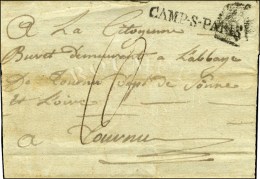 CAMP-S-PARIS
A La Citoyenne
Buret demeurant a L'abbaye
De Tournu Dept de Sonne
et Loire
a Tournu